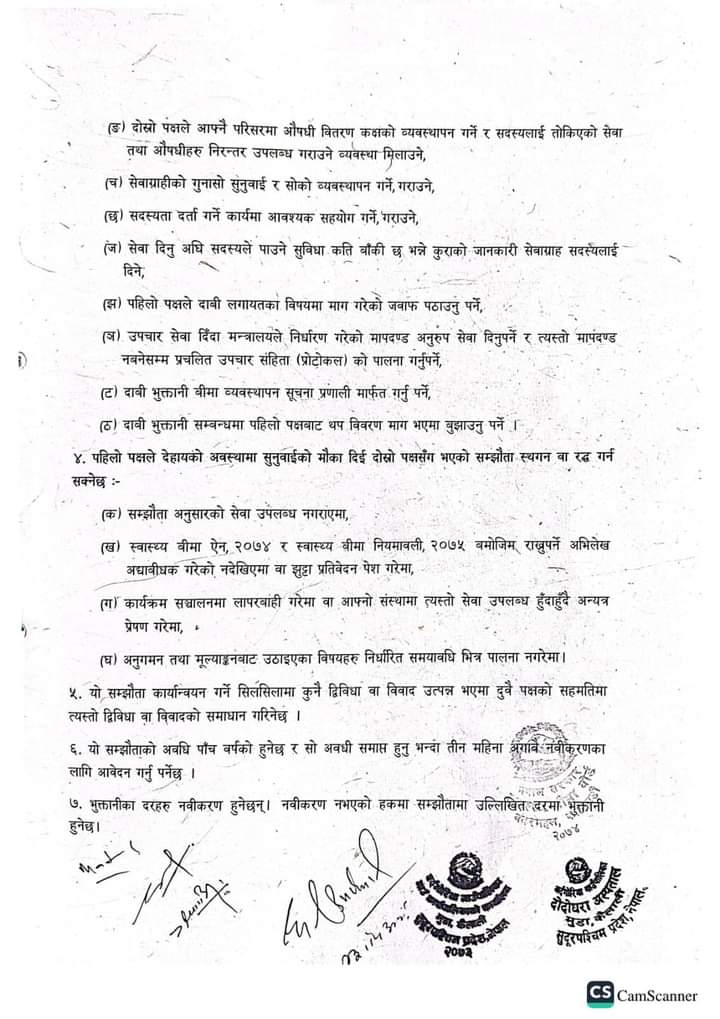 (ङ) दोस्रो पक्षले आफ्नै परिसरमा औषधी वितरण कक्षको व्यवस्थापन गर्ने र सदस्यलाई तोकिएको सेवा
तथा औषधीहरु निरन्तर उपलब्ध गराउने व्यवस्था मिलाउने,
(च) सेवाग्राहीको गुनासो सुनुवाई र सोको व्यवस्थापन गर्ने, गराउने,
(छ) सदस्यता दर्ता गर्ने कार्यमा आवश्यक सहयोग गर्ने, गराउने,
(ज) सेवा दिनु अघि सदस्यले पाउने सुविधा कति बाँकी छ भन्ने कुराको जानकारी सेवाग्राह सदस्यलाई
दिने,
(झ) पहिलो पक्षले दाबी लगायतका विषयमा माग गरेको जवाफ पठाउनु पर्ने,
(ञ) उपचार सेवा दिँदा मन्त्रालयले निर्धारण गरेको मापदण्ड अनुरुप सेवा दिनुपर्ने र त्यस्तो मापदण्ड
नबनेसम्म प्रचलित उपचार संहिता (प्रोटोकल) को पालना गर्नुपर्ने,
(ट) दाबी भुक्तानी बीमा व्यवस्थापन सूचना प्रणाली मार्फत गर्नु पर्ने,
(ठ) दाबी भुक्तानी सम्बन्धमा पहिलो पक्षबाट थप विवरण माग भएमा बुझाउनु पर्ने ।
४. पहिलो पक्षले देहायको अवस्थामा सुनुवाईको मौका दिई दोस्रो पक्षसँग भएको सम्झौता स्थगन वा रद्ध गर्न
सक्नेछ :-
(क) सम्झौता अनुसारको सेवा उपलब्ध नगराएमा,
(ख) स्वास्थ्य बीमा ऐन, २०७४ र स्वास्थ्य बीमा नियमावली, २०७५ बमोजिम राख्नुपर्ने अभिलेख
अद्यावीधक गरेको नदेखिएमा वा झुट्टा प्रतिवेदन पेश गरेमा,
(ग) कार्यक्रम सञ्चालनमा लापरबाही गरेमा वा आफ्नो संस्थामा त्यस्तो सेवा उपलब्ध हुँदाहुँदै अन्यत्र
प्रेषण गरेमा,
(घ) अनुगमन तथा मूल्याङ्कनबाट उठाइएका विषयहरु निर्धारित समयावधि भित्र पालना नगरेमा।
५. यो सम्झौता कार्यान्वयन गर्ने सिलसिलामा कुनै द्विविधा वा विवाद उत्पन्न भएमा दुवै पक्षको सहमतिमा
त्यस्तो द्विविधा वा विवादको समाधान गरिनेछ ।
६. यो सम्झौताको अवधि पाँच वर्षको हुनेछ र सो अवधी समाप्त हुनु भन्दा तीन महिना अगावै नवीकरणका
लागि आवेदन गर्नु पर्नेछ ।
७. भुक्तानीका दरहरु नवीकरण हुनेछन्। नवीकरण नभएको हकमा सम्झौतामा उल्लिखित दरमा भुक्तानी
हुनेछ।
नेपाल सरकार
२०७४
मुडा, कैलाली
सुदूरपश्चिम प्रदेश, नेपाल
२०७३
दोदोधरा अस्पताल
मुडा, कैलाली
सुदूरपश्चिम प्रदेश, नेपाल
CS CamScanner